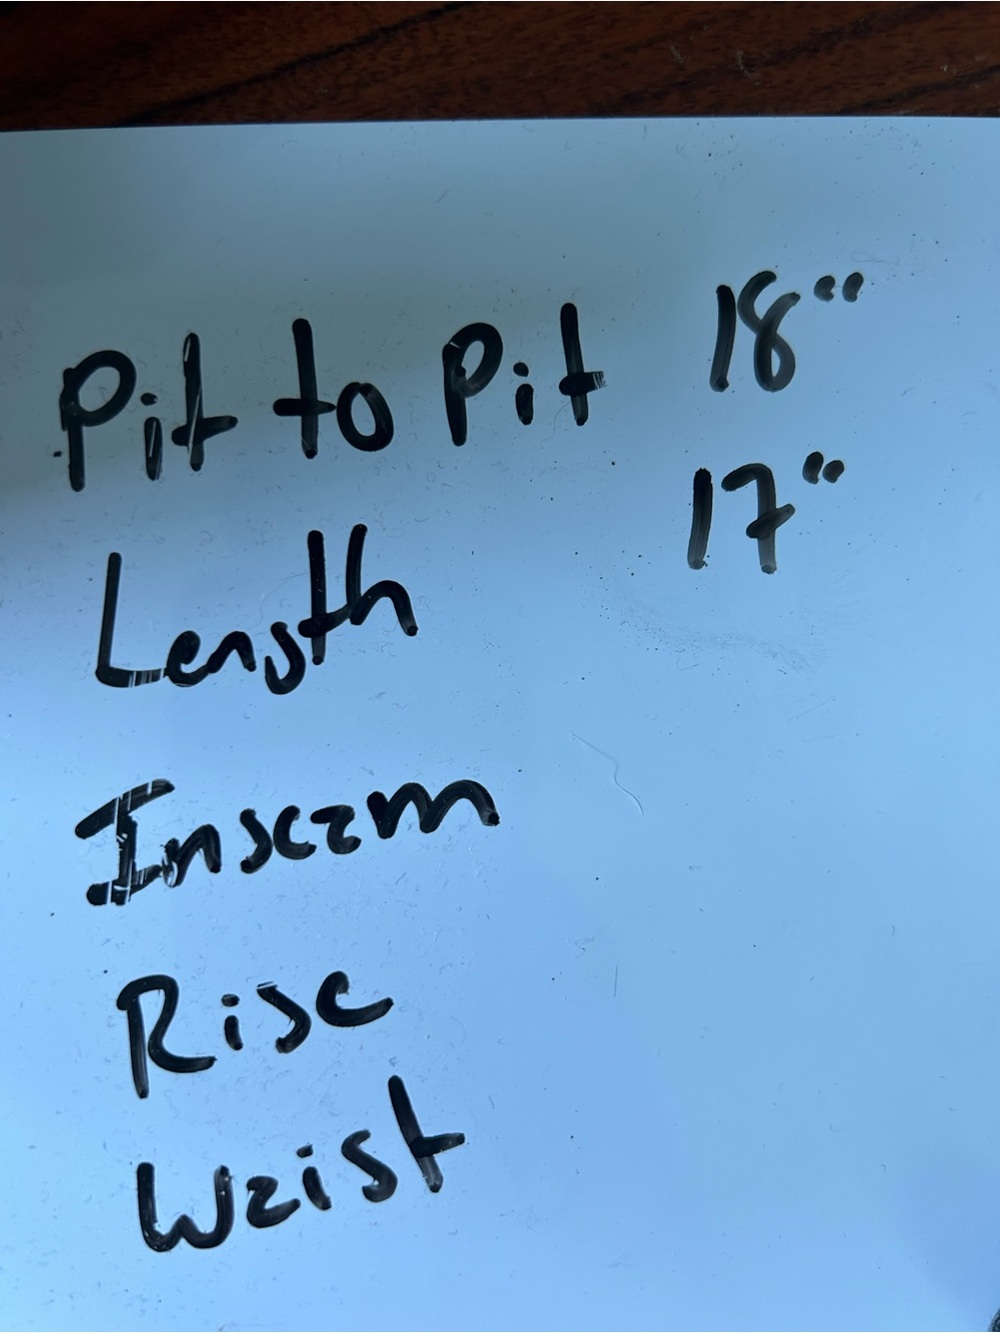 Pit to Pit 18"
Length 17"
Inseam
Rise
Waist